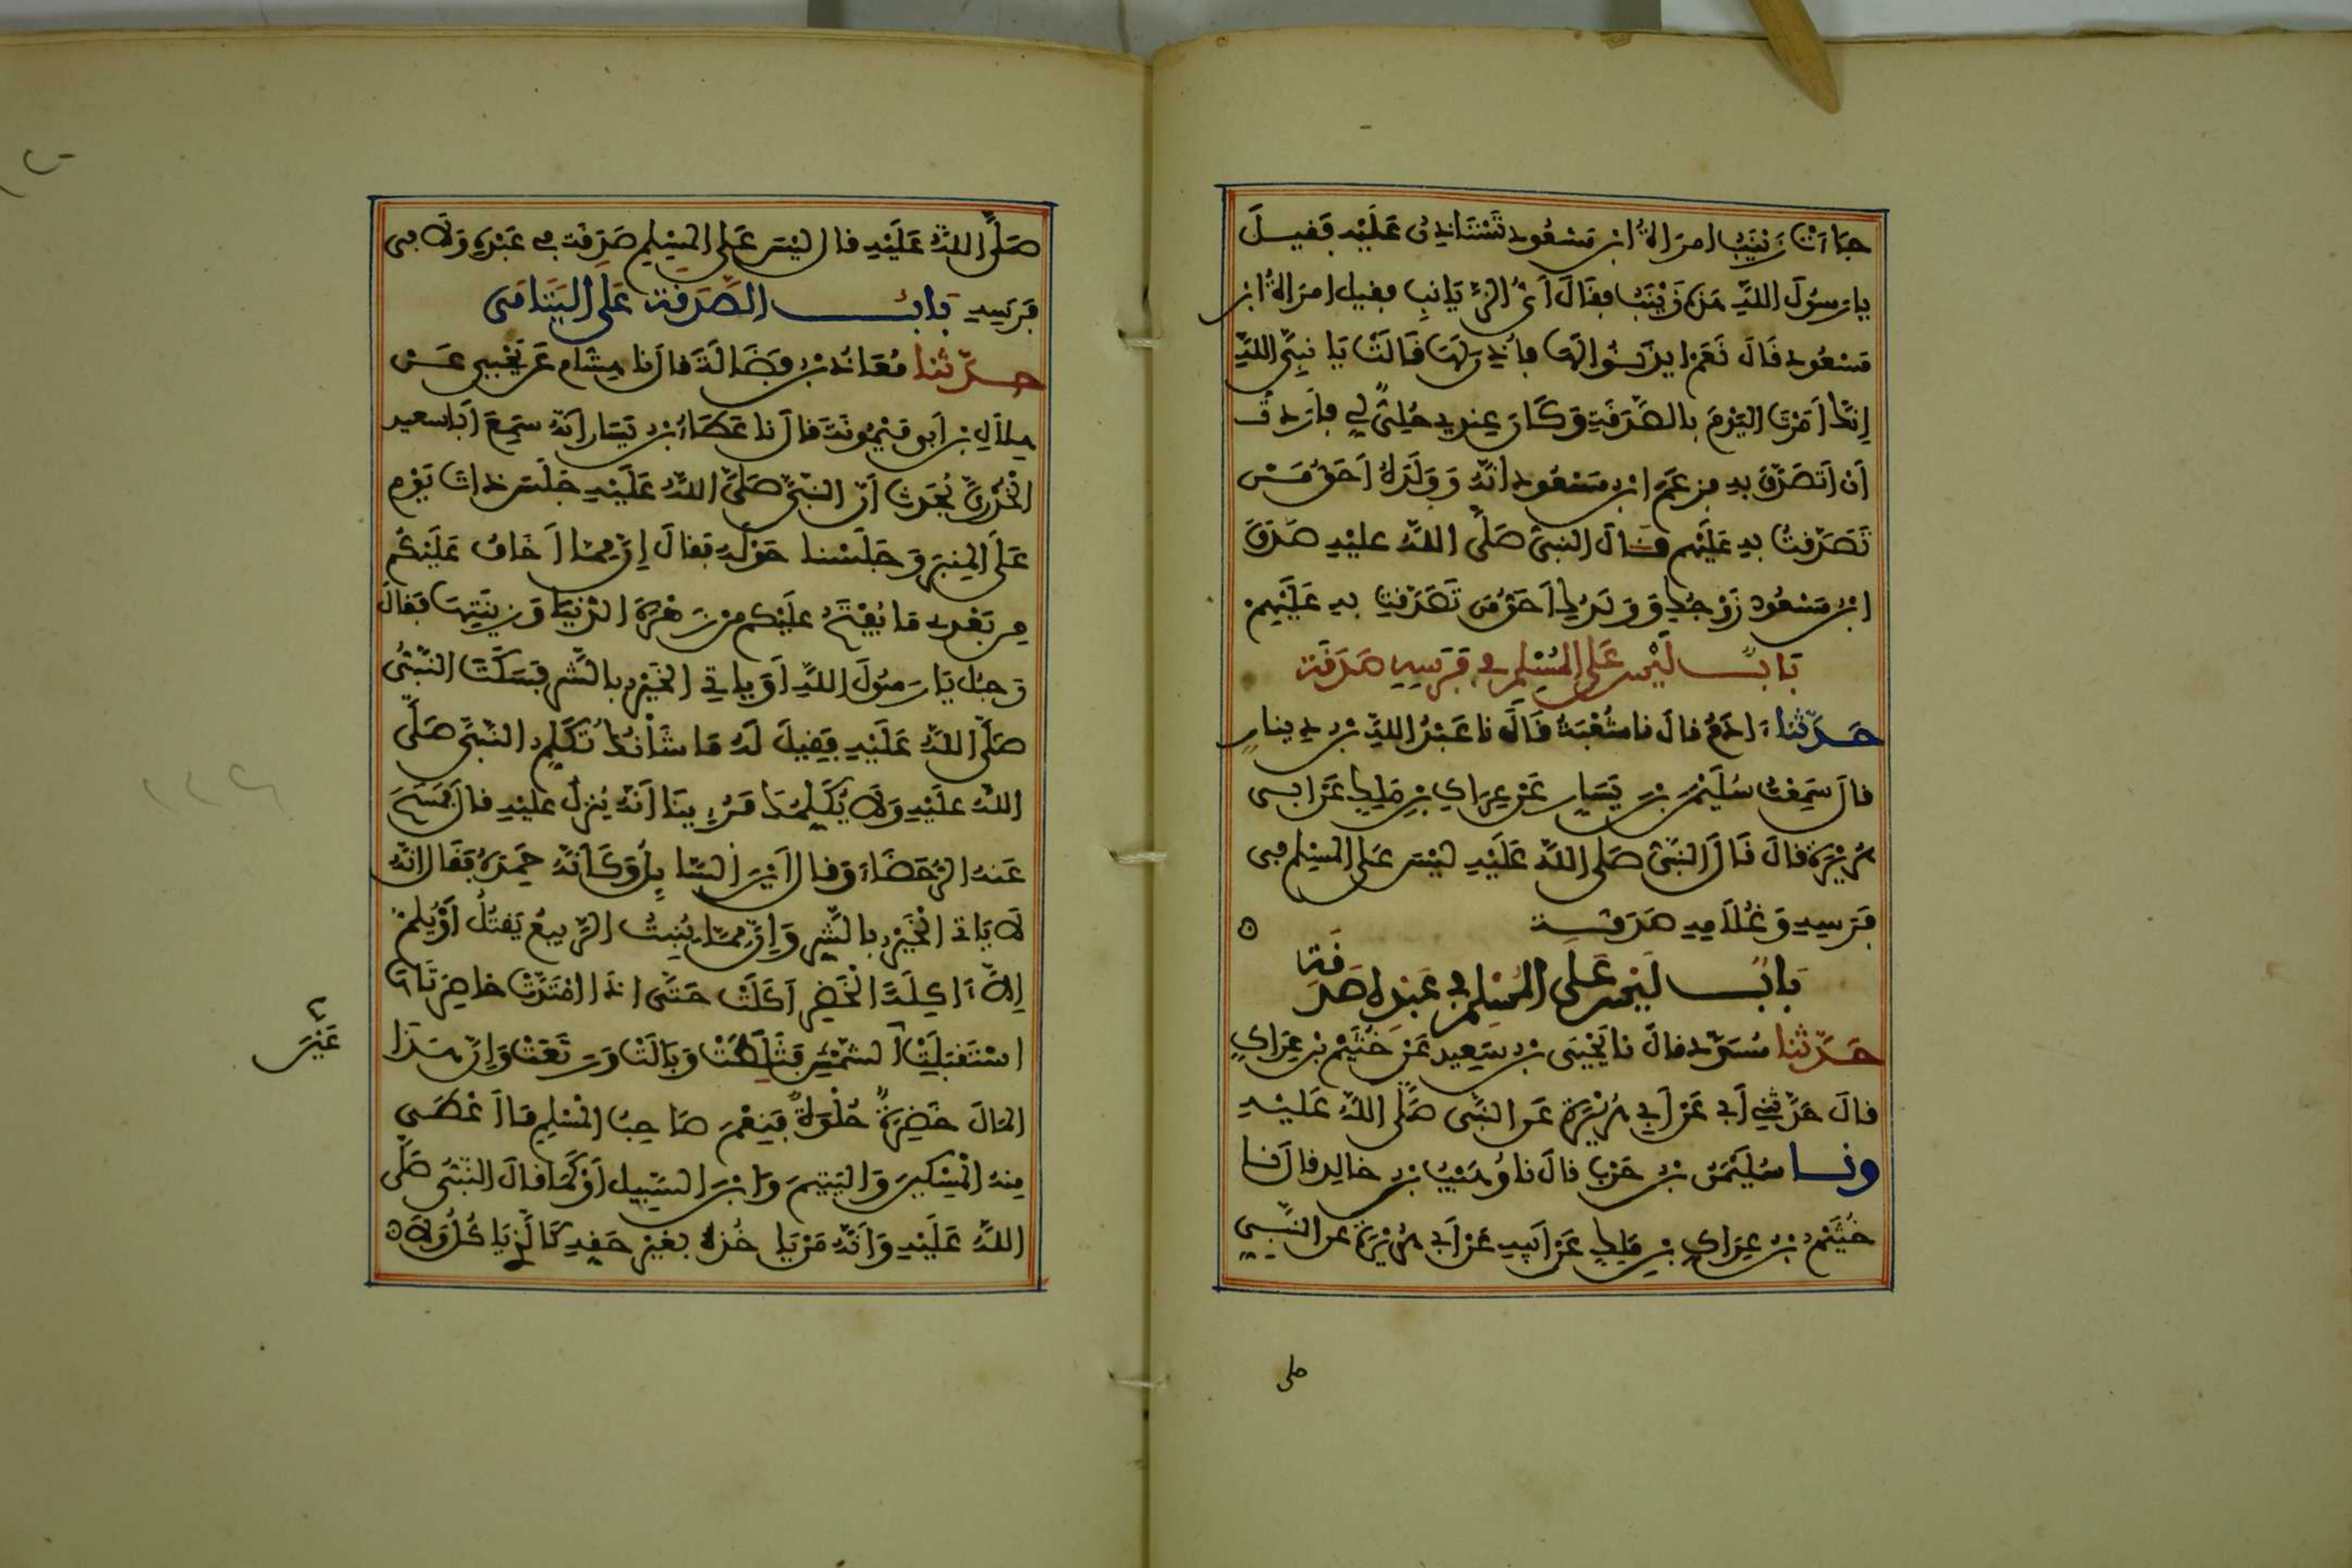 جَاءَتْ زَيْنَبُ امرَاةُ ابْنِ مَسْعُودٍ تَسْتَاذِنُ عَلَيْهِ فَقِيلَ
يا رسُولَ اللهِ هَذِهِ زَيْنَبُ فقَالَ أَيُّ الزَّيَانِبِ فقيل امرَاةُ ابْنِ
مَسْعُودٍ قَالَ نَعَمْ ايذَنُوا لَهَا فأُذِنَ لَهَا قَالَتْ يَا نَبِيَّ اللهِ
إِنَّكَ أَمَرْتَ اليَوْمَ بِالصَّدَقَةِ وَكَانَ عِندِي حُلِيٌّ لِي فأَرَدتُّ
أَنْ أَتَصَدَّقَ بِهِ فزعَمَ ابْنُ مَسْعُودٍ انَّهُ وَوَلَدَهُ أَحَقُّ مَنْ
تَصَدَّقتُ بِهِ عَلَيْهِم فقَالَ النبيُّ صَلَّى اللهُ عليْهِ صَدَقَ
ابْنُ مَسْعُودٍ زَوْجُكِ وَوَلَدُكِ أَحَقُّ مَن تَصَدَّقْتِ بِهِ عَلَيْهِمْ
بَابٌ لَيْسَ عَلَى المُسْلِمِ فِي فَرَسِهِ صَدَقَة
حَدَّثنا ءَادَمُ قالَ نا شُعْبَةُ قَالَ نا عَبْدُ اللهِ بْنُ دِينارٍ
قالَ سَمِعْتُ سُلَيْمَنَ بْنَ يَسَارٍ عَنْ عِرَاكِ بْنِ مَلِكٍ عَنْ ابِي
هُرَيْرَةَ قالَ قَالَ النَّبِيُّ صَلَّى اللهُ عَلَيْهِ لَيْسَ عَلَى المُسْلِمِ فِي
فَرَسِهِ وَغُلَامِهِ صَدَقَة ه
بَابٌ لَيْسَ عَلَى المُسْلِمِ فِي عَبْدِهِ صَدَقَة
حَدَّثنا مُسَدَّدٌ قالَ نا يَحْيَى بْنُ سَعِيدٍ عَنْ خُثَيْمِ بْنِ عِرَاكٍ
قالَ حَدَّثَنِي أَبِي عَنْ أَبِي هُرَيْرَةَ عَنِ النَّبِيِّ صَلَّى اللهُ عَلَيْهِ
ونا سُلَيْمَنُ بْنُ حَرْبٍ قالَ نا وُهَيْبُ بْنُ خالِدٍ قالَ نا
خُثَيْمُ بْنُ عِرَاكِ بْنِ مَلِكٍ عَنْ أَبِيهِ عَنْ أَبِي هُرَيْرَةَ عن النَّبِيِّ
صلى
صَلَّى اللهُ عَلَيْهِ قال لَيْسَ عَلَى المُسْلِمِ صَدَقَةٌ فِي عَبْدِهِ وَلَا فِي
فَرَسِهِ بَابُ الصَّدَقَةِ عَلَى اليَتَامَى
حدَّثنا مُعَاذُ بْنُ فَضَالَةَ قال نا هِشَام عَن يَحْيَى عَنْ
هِلَالِ بْنِ أَبِي مَيْمُونَةَ قال نا عَطَاءُ بْنُ يَسَارٍ أَنَّهُ سَمِعَ أَبَا سعيد
الْخُدْرِيَّ يُحَدِّثُ أَنَّ النَّبِيَّ صَلَّى اللهُ عَلَيْهِ جَلَسَ ذَاتَ يَوْمٍ
عَلَى المِنبَرِ وَجَلَسْنا حَوْلَهُ فقالَ إِنَّ مِمَّا أَخَافُ عَلَيْكُم
مِن بَعْدِي مَا يُفْتَحُ عَلَيْكُم مِنْ زَهْرَةِ الدُّنْيَا وَزِينَتِهَا فقَالَ
رَجُلٌ يَا رَسُولَ اللهِ أَوَ يَاتِي الخَيْرُ بِالشَّرِّ فسَكَتَ النَّبِيُّ
صَلَّى اللهُ عَلَيْهِ فقِيلَ لَهُ مَا شَأْنُكَ تُكَلِّمُ النَّبِيَّ صَلَّى
اللهُ عَلَيْهِ وَلَا يُكَلِّمُكَ فَرُءِينَا أَنَّهُ يُنزَلُ عَلَيْهِ قال فَمَسَحَ
عَنهُ الرُّحَضَاءَ وَقال أَيْنَ السَّايِلُ وَكَأَنَّهُ حَمِدَهُ فقَالَ انَّهُ
لَا يَاتِي الْخَيْرُ بالشَّرِّ وَإِنَّ مِمَّا يُنبِتُ الرَّبِيعُ يَقْتُلُ أَوْ يُلِمُّ
إِلَّا ءَاكِلَةَ الْخَضِرِ أَكَلَتْ حَتَّى اذَا امْتَدَّتْ خاصِرَتَاهَا
اسْتَقبَلَتْ الشَّمْسِ فَثَلَطَتْ وَبَالَتْ وَرَتَعَتْ وَإِنَّ هَذَا
عَيْنَ
المَالَ خَضِرَةٌ حُلْوَةٌ فَنِعْمَ صَاحِبُ المُسْلِمِ مَا أَعْطَى
مِنهُ الْمِسْكِينَ وَاليَتِيمَ وَابْنَ السَّبِيلِ أَوْ كَمَا قالَ النَّبِيُّ صَلَّى
اللهُ عَلَيْهِ وَأَنَّهُ مَنْ يَاخُذْهُ بِغَيْرِ حَقِّهِ كَالَّذِي يَاكُلُ وَلَا ه